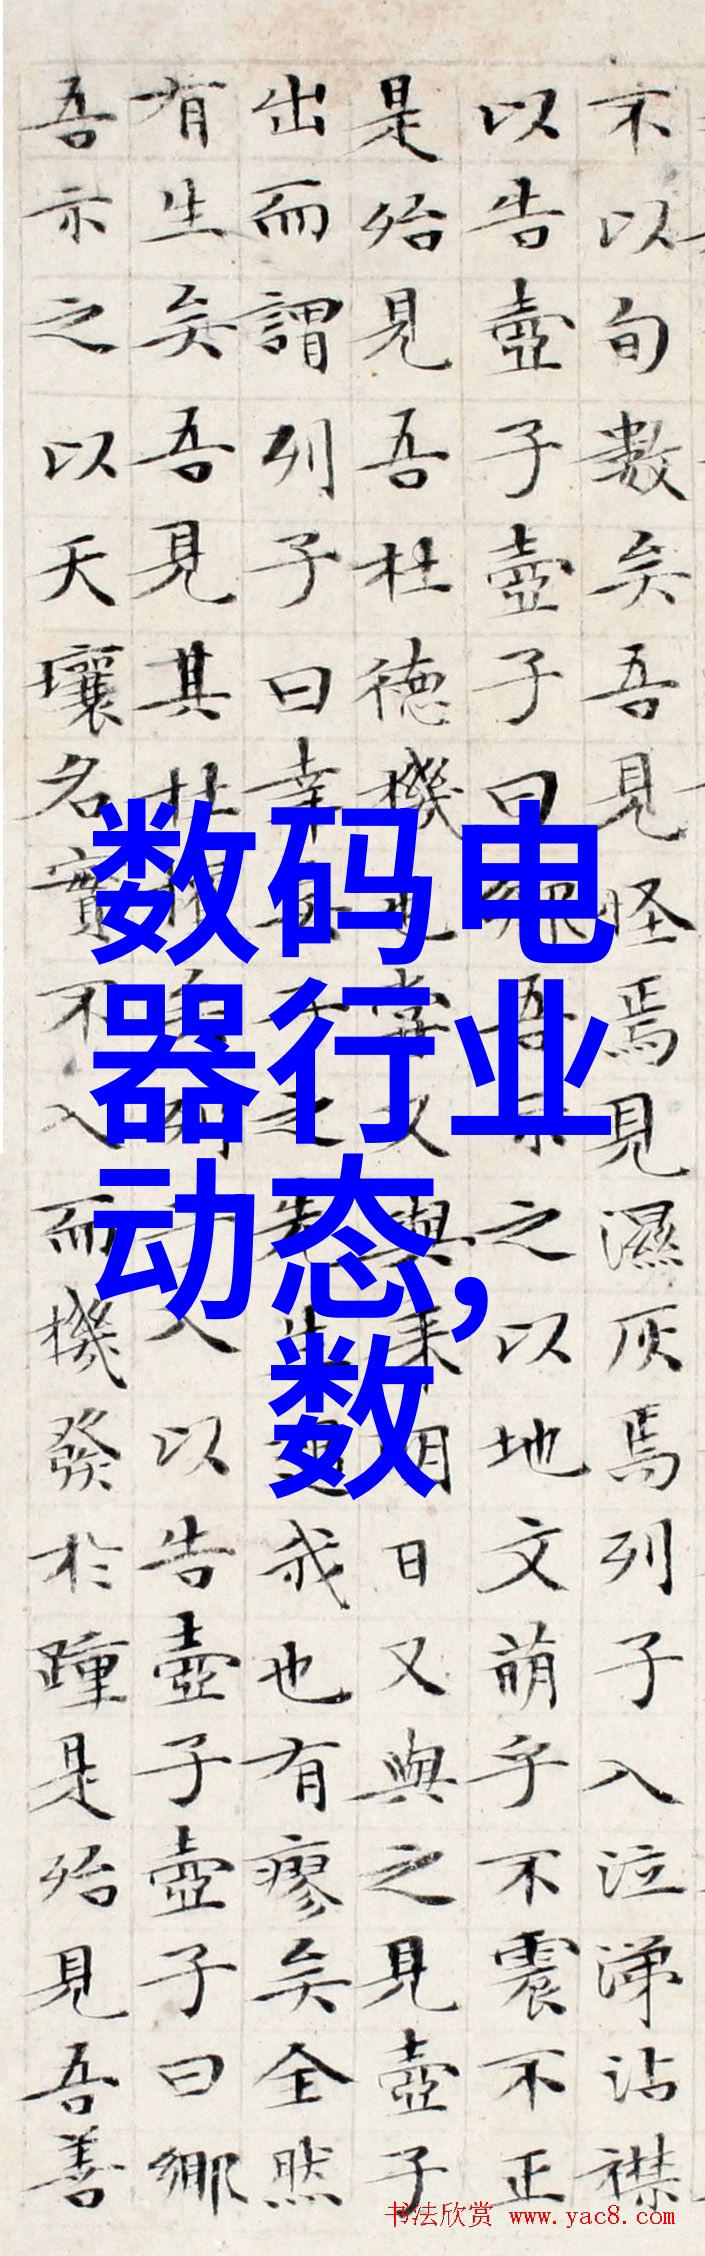 不以旬數矣吾見怪焉見濕灰焉列子入泣涕沾襟
以告壺子壺子曰鄉吾示之以地文萌乎不震不正
是殆見吾杜德機也嘗又與來明日又與之見壺子
出而謂列子曰幸矣子之先生遇我也有瘳矣全然
有生矣吾見其杜權矣列子入以告壺子壺子曰鄉
吾示之以天壤名實不入而機發於踵是殆見吾善
数码电
器行业
动态,
数
书法欣赏 www.yac8.com